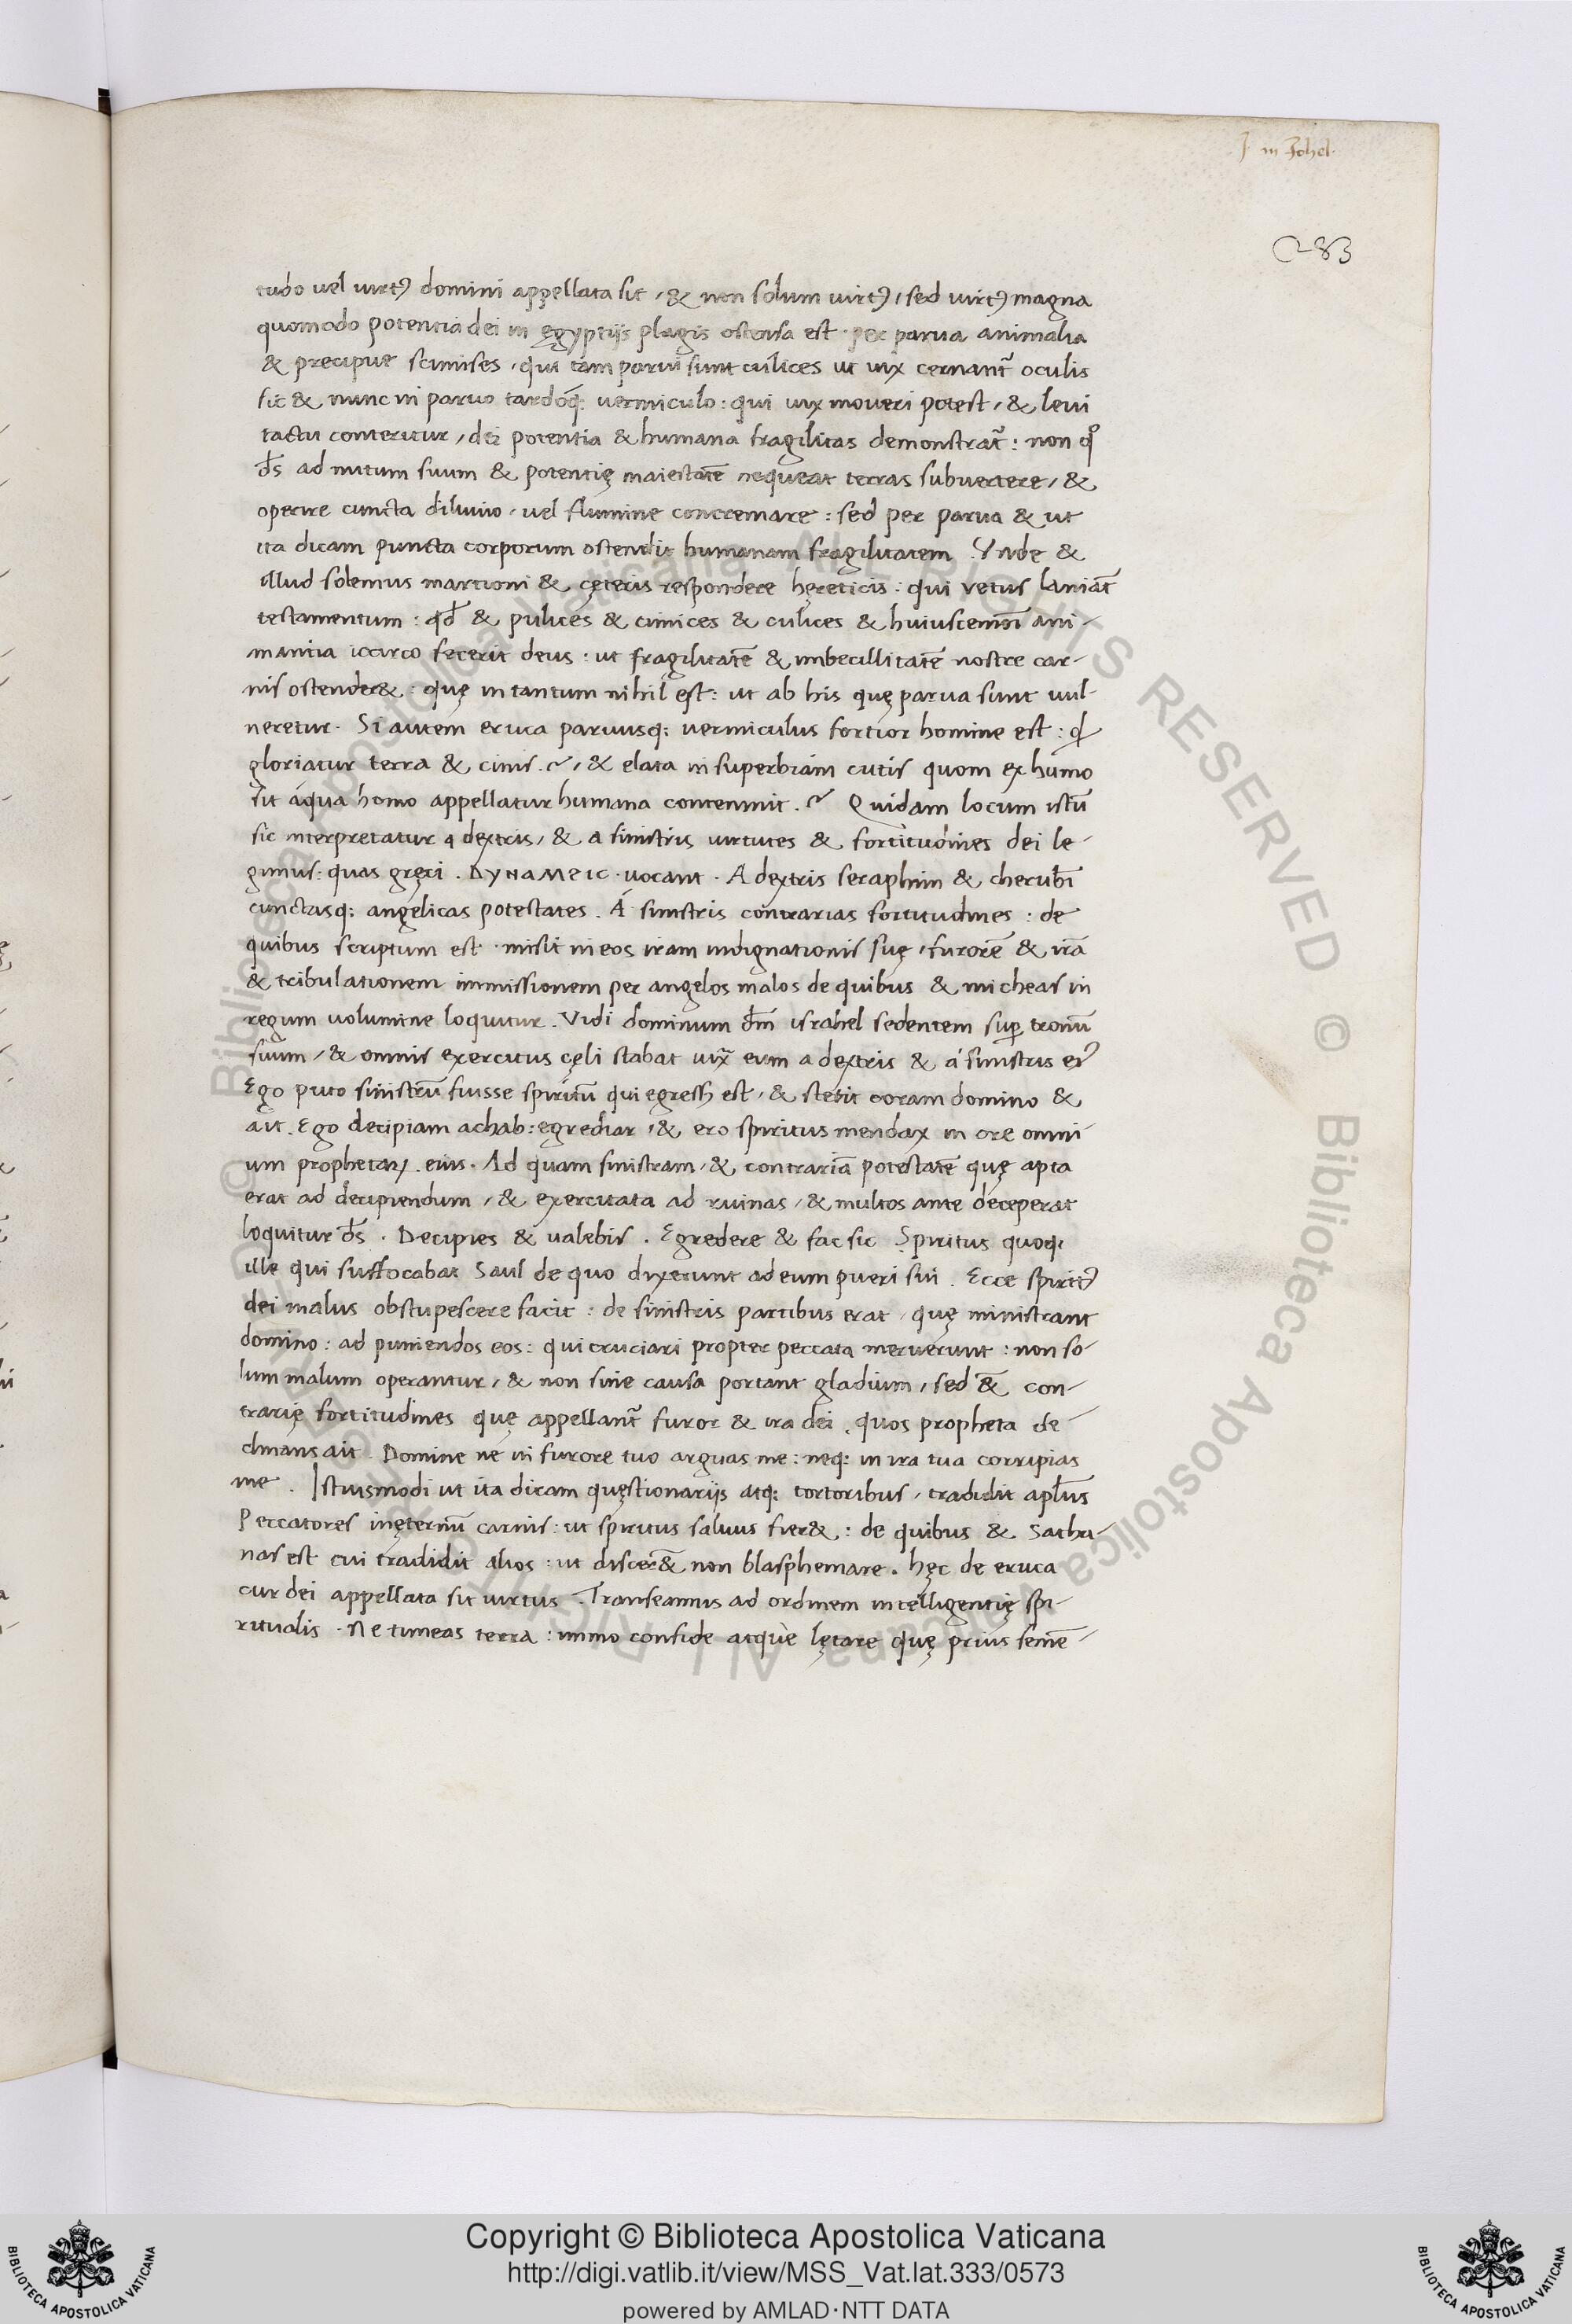 J in Iohel.
283
tudo uel uirtꝰ domini appellata sit, & non solum uirtꝰ, sed uirtꝰ magna
quomodo potentia dei in ęgyptijs plagis ostensa est. per parua animalia
& precipue scinises, qui tam parui sunt culices ut uix cernant᷑ oculis
sic & nunc in paruo tardoq; uermiculo: qui uix moueri potest, & leui
tactu conteritur, dei potentia & humana fragilitas demonstrat᷑: non qͦ
d̄s ad nutum suum & potentię maiestatē nequeat terras subuertere, &
operire cuncta diluuio, uel flumine concremare: sed per parua & ut
ita dicam puncta corporum ostendit humanam fragilitatem. Vnde &
illud solemus martioni & cęteris respondere hęreticis: qui vetus laniāt
testamentum: qd̄ & pulices & cimices & culices & huiuscemōi ani-
mantia iccirco fecerit deus: ut fragilitatē & imbecillitatē nostre car-
nis ostender&: quę in tantum nihil est: ut ab his quę parua sunt uul-
neretur. Si autem eruca paruusq; uermiculus fortior homine est: qd
gloriatur terra & cinis.~, & elata in superbiam cutis quom ex humo
sit áqua homo appellatur humana contemnit.~ Quidam locum istū
sic interpretatur a dextris, & a sinistris uirtutes & fortitudines dei le-
gimus: quas gręci. DYNAMEIC. uocant. A dextris seraphim & cherubī
cunctasq; angelicas potestates. Á sinistris contrarias fortitudines: de
quibus scriptum est. misit in eos iram indignationis suę, furorē & irā
& tribulationem immissionem per angelos malos de quibus & micheas in
regum uolumine loquitur. Vidi dominum dm̄ israhel sedentem suꝑ tronū
suum, & omnis exercitus cęli stabat uix̄ eum a dextris & á sinistris eiꝰ
Ego puto sinistrū fuisse spiritū qui egressꝰ est, & stetit coram domino &
ait. Ego decipiam achab: egrediar, & ero spiritus mendax in ore omni-
um prophetaꝝ. eius. Ad quam sinistram, & contrariā potestatē quę apta
erat ad decipiendum, & exercitata ad ruinas, & multos ante deceperat
loquitur d̄s. Decipies & ualebis. Egredere & fac sic Spiritus quoq;
ille qui suffocabat Saul de quo dixerunt ad eum pueri sui. Ecce spiritꝰ
dei malus obstupescere facit: de sinistris partibus erat, quę ministrant
domino: ad puniendos eos: qui cruciari propter peccata meruerunt: non so-
lum malum operantur, & non sine causa portant gladium, sed &̄ con-
trarię fortitudines quę appellant᷑ furor & ira dei, quos propheta de-
clinans ait. Domine ne in furore tuo arguas me: neq; in ira tua corripias
me. Istiusmodi ut ita dicam quęstionarijs atq; tortoribus, tradidit apl̄us
Peccatores in ęternū carnis: ut spiritus saluus fier&: de quibus & Satha-
nas est cui tradidit alios: ut discer&̄ non blasphemare. hęc de eruca
cur dei appellata sit uirtus. Transeamus ad ordinem intelligentię spi-
ritualis. Ne timeas terra: immo confide atque lętare quę prius femē-
Copyright © Biblioteca Apostolica Vaticana
http://digi.vatlib.it/view/MSS_Vat.lat.333/0573
powered by AMLAD·NTT DATA
BIBLIOTECA APOSTOLICA VATICANA
BIBLIOTECA APOSTOLICA VATICANA